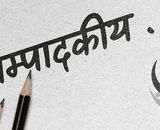 म्पादकीय